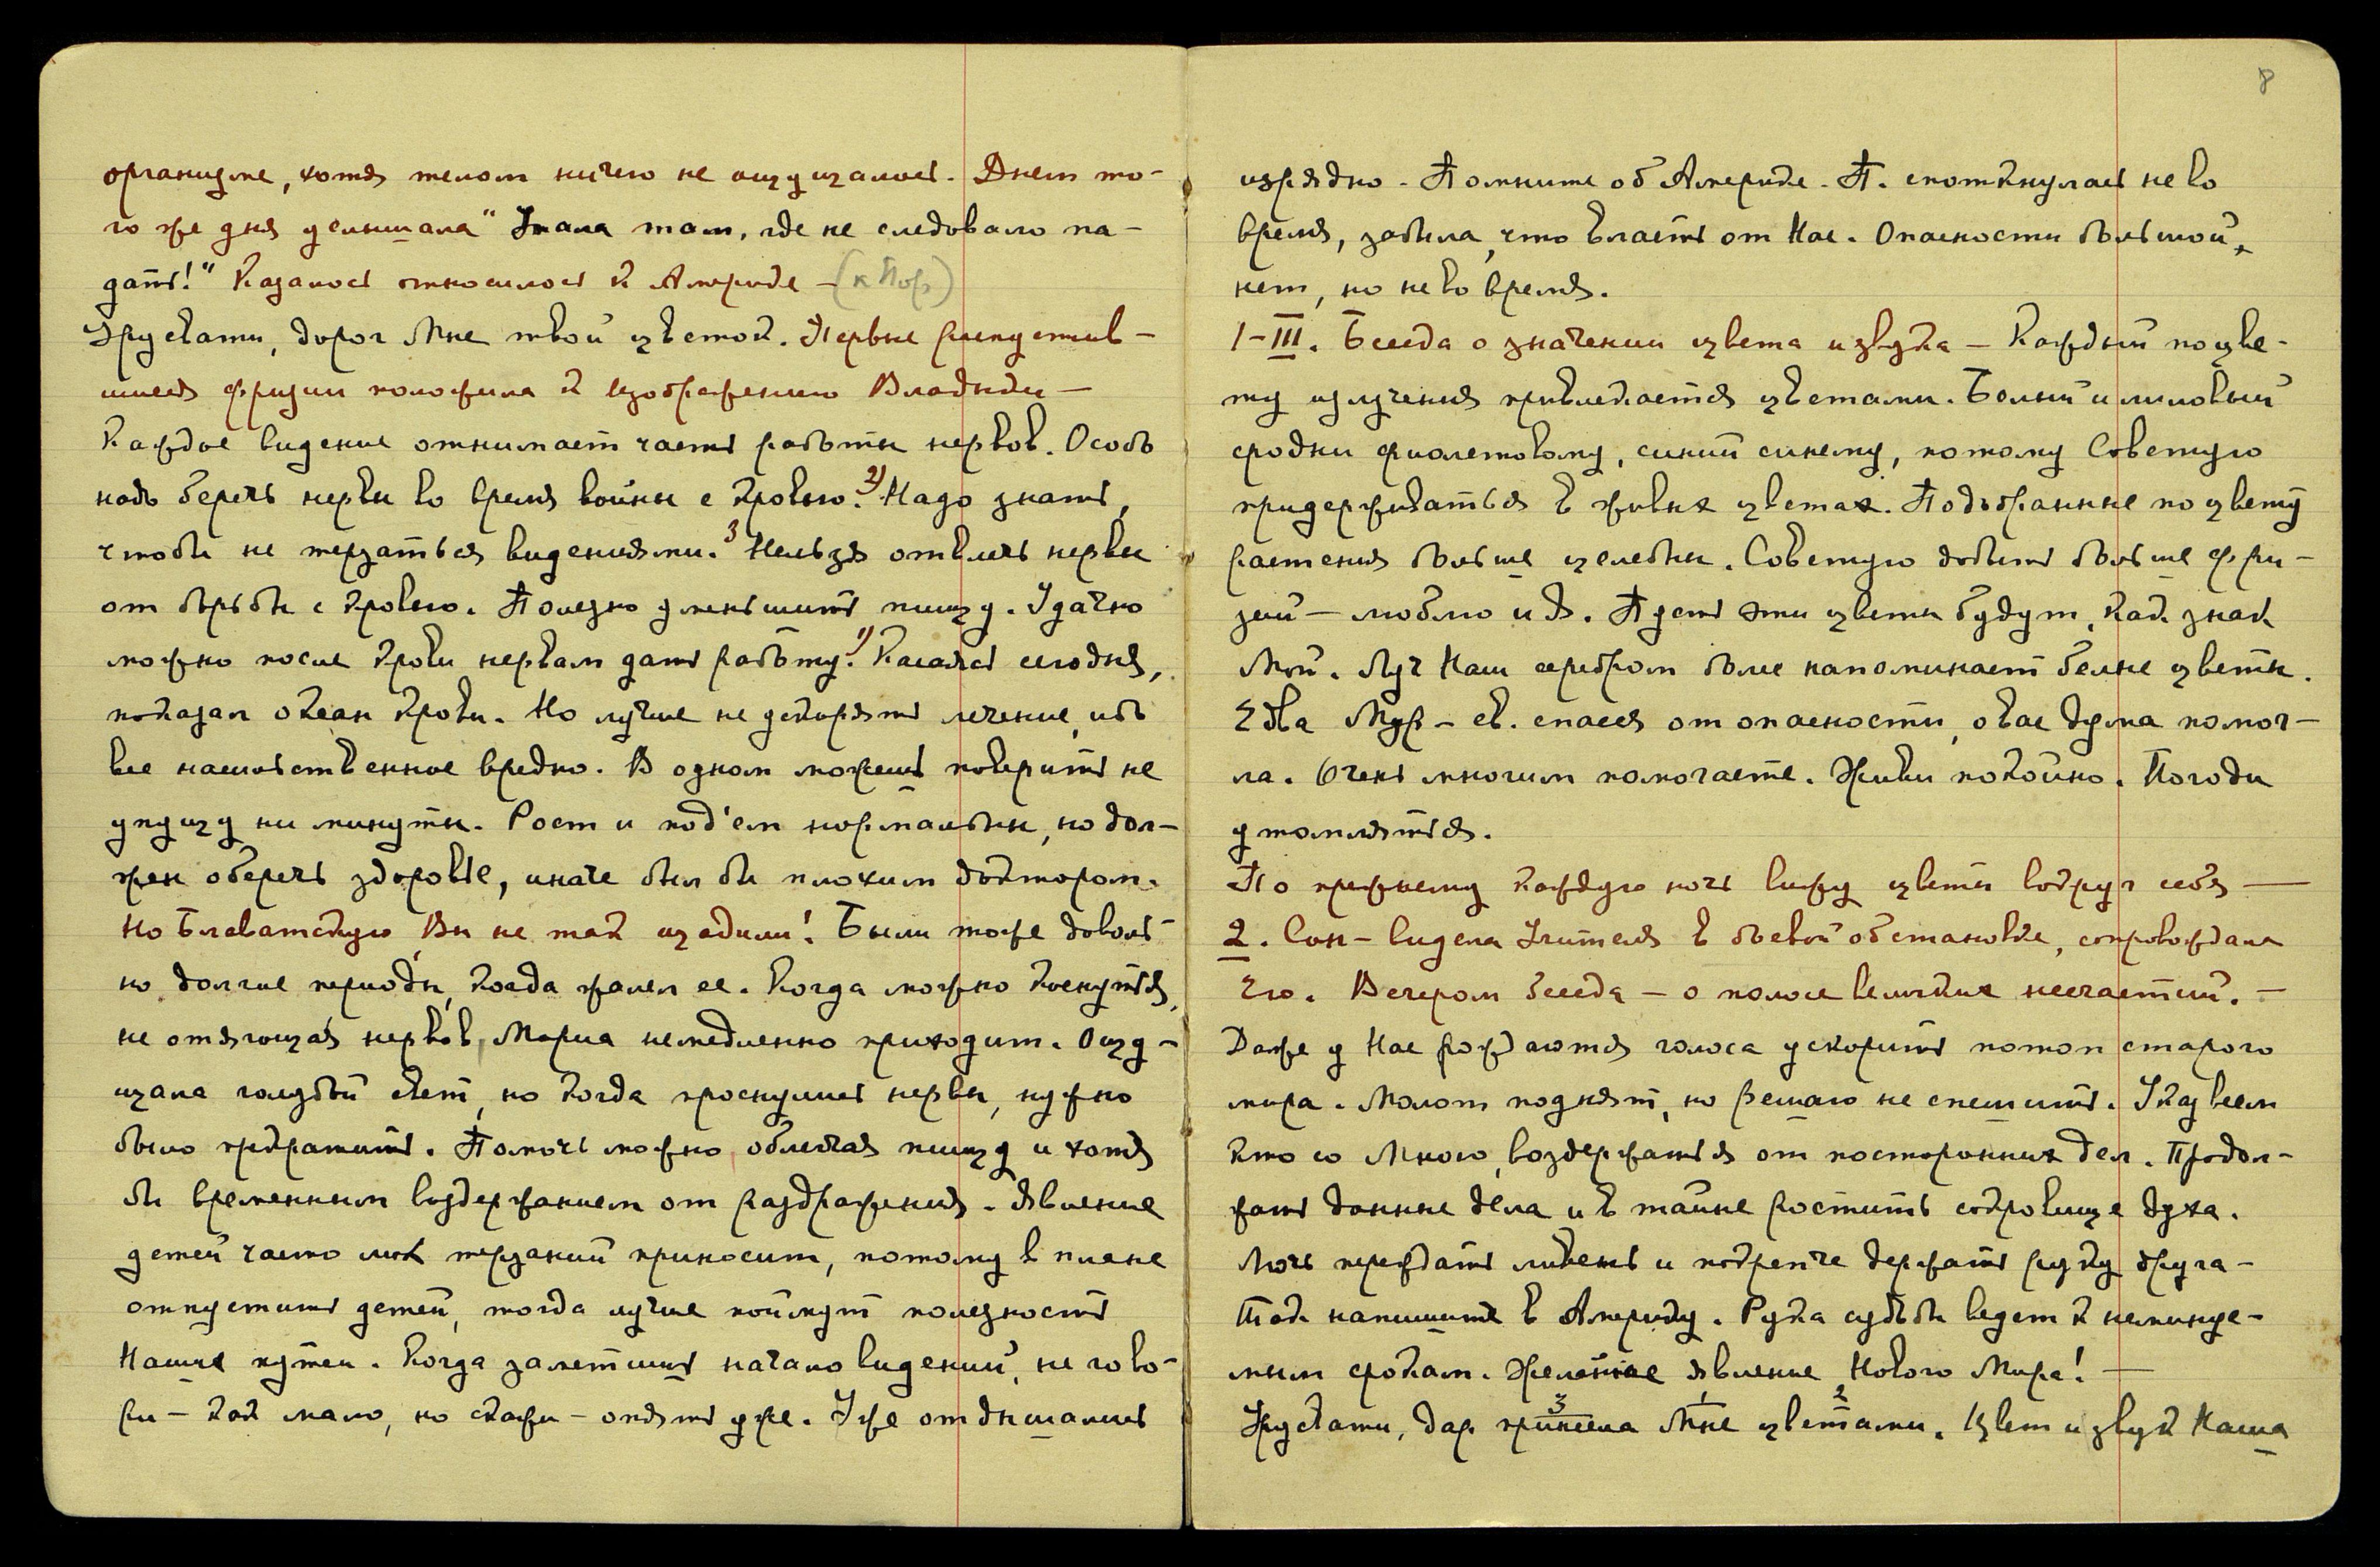 организме, хотя телом ничего не ощущалось. Днем то-
го же дня услышала "Упала там, где не следовало па-
дать!" Казалось относилось к Америке – (к Пор)
Урусвати, дорог Мне твой цветок. Первые распустив-
шиеся фризии положила к изображению Владыки –
Каждое видение отнимает часть работы нервов. Особо
надо беречь нервы во время войны с кровью. 2) Надо знать,
чтобы не терзаться видениями. 3 Нельзя отвлечь нервы
от борьбы с кровью. Полезно уменьшить пищу. Удачно
можно после крови нервам дать работу. 1) Касаясь сегодня,
показал океан крови. Но лучше не ускорять лечение, ибо
все насильственное вредно. В одном можешь поверить не
упущу ни минуты. Рост и под'ем нормальны, но дол-
жен оберечь здоровье, иначе был бы плохим доктором.
Но Блаватскую, Вы не так щадили! Были тоже доволь-
но долгие периоды, когда жалел ее. Когда можно коснуться,
не отягощая нервов, Мориа немедленно приходит. Ощу-
щала голубой свет, но когда проснулись нервы, нужно
было прекратить. Помочь можно, облегчая пищу и хотя
бы временным воздержанием от раздражения. Явление
детей часто терзаний приносит, потому в плане
отпустить детей, тогда лучше поймут полезность
Наших путей. Когда заметишь начало видений, не гово-
ри – как мало, но скажи – опять уже. Уже отдышались
8
изрядно. Помните об Америке. П. споткнулась не во
время, забыла, что власть от Нас. Опасности большой
нет, но не во время.
1-III. Беседа о значении цвета и звука – Каждый по цве-
ту излучения привлекается цветами. Белый и лиловый
сродни фиолетовому, синий синему, потому Советую
придерживаться в живых цветах. Подобранные по цвету
растения больше целебны. Советую добыть больше фри-
зий – люблю и Я. Пусть эти цветы будут, как знак
Мой. Луч Наш серебром более напоминает белые цветы.
Едва Мур – ев. спасся от опасности, о вас дума помог-
ла. Очень многим помогаете. Живи покойно. Погоди
утомляться.
По прежнему каждую ночь вижу цветы вокруг себя —
2. Сон – видела Учителя в боевой обстановке, сопровождала
Его. Вечером беседа – о полосе великих несчастий. –
Даже у Нас рождаются голоса ускорить потоп старого
мира. Молот поднят, но Решаю не спешить. Указ всем
кто со Мною, воздержаться от посторонних дел. Продол-
жать данные дела и в тайне растить сокровище духа.
Лишь переждать ливень и покрепче держать руку друга –
Так напишите в Америку. Рука судьбы ведет к неминуе-
мым срокам. Желанное явление Нового Мира! —
Урусвати, дар принесла 3 Мне 1 цветами 2. Цвет и звук Наша